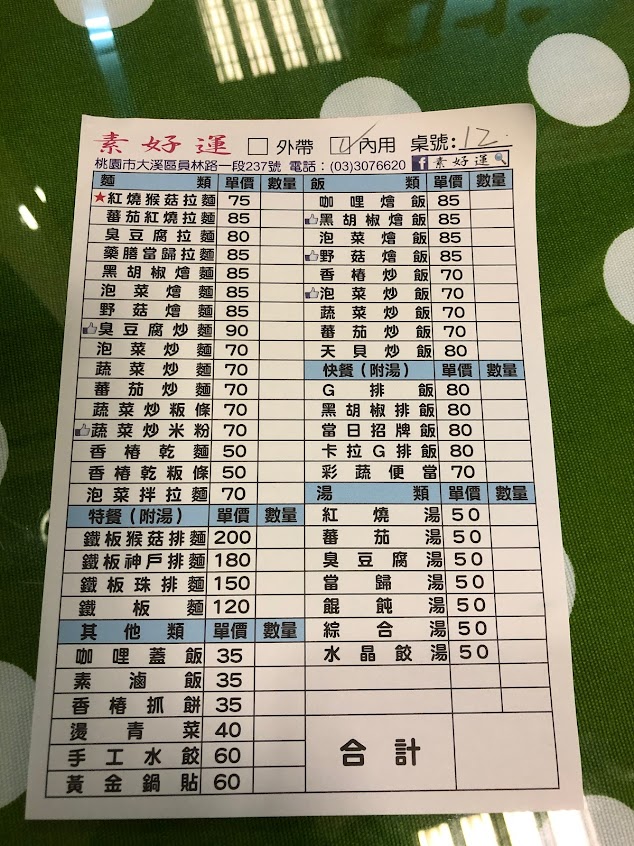 素好運 □外帶 ☑內用 桌號:12
桃園市大溪區員林路一段237號 電話:(03)3076620 f 素好運
麵類 單價 數量
★紅燒猴菇拉麵 75
蕃茄紅燒拉麵 80
臭豆腐拉麵 80
藥膳當歸拉麵 85
黑胡椒燴麵 85
泡菜燴麵 85
野菇燴麵 85
臭豆腐炒麵 90
泡菜炒麵 70
蔬菜炒麵 70
蕃茄炒麵 70
蔬菜炒粄條 70
蔬菜炒米粉 70
香椿乾麵 50
香椿乾粄條 50
泡菜拌拉麵 70
特餐(附湯) 單價 數量
鐵板猴菇排麵 200
鐵板神戶排麵 180
鐵板珠排麵 150
鐵板麵 120
其他類 單價 數量
咖哩蓋飯 35
素滷飯 35
香椿抓餅 35
燙青菜 40
手工水餃 60
黃金鍋貼 60
飯類 單價 數量
咖哩燴飯 85
黑胡椒燴飯 85
泡菜燴飯 85
野菇燴飯 85
香椿炒飯 70
泡菜炒飯 70
蔬菜炒飯 70
蕃茄炒飯 70
天貝炒飯 80
快餐(附湯) 單價 數量
G排飯 80
黑胡椒排飯 80
當日招牌飯 80
卡拉G排飯 80
彩蔬便當 70
湯類 單價 數量
紅燒湯 50
蕃茄湯 50
臭豆腐湯 50
當歸湯 50
餛飩湯 50
綜合湯 50
水晶餃湯 50
合計